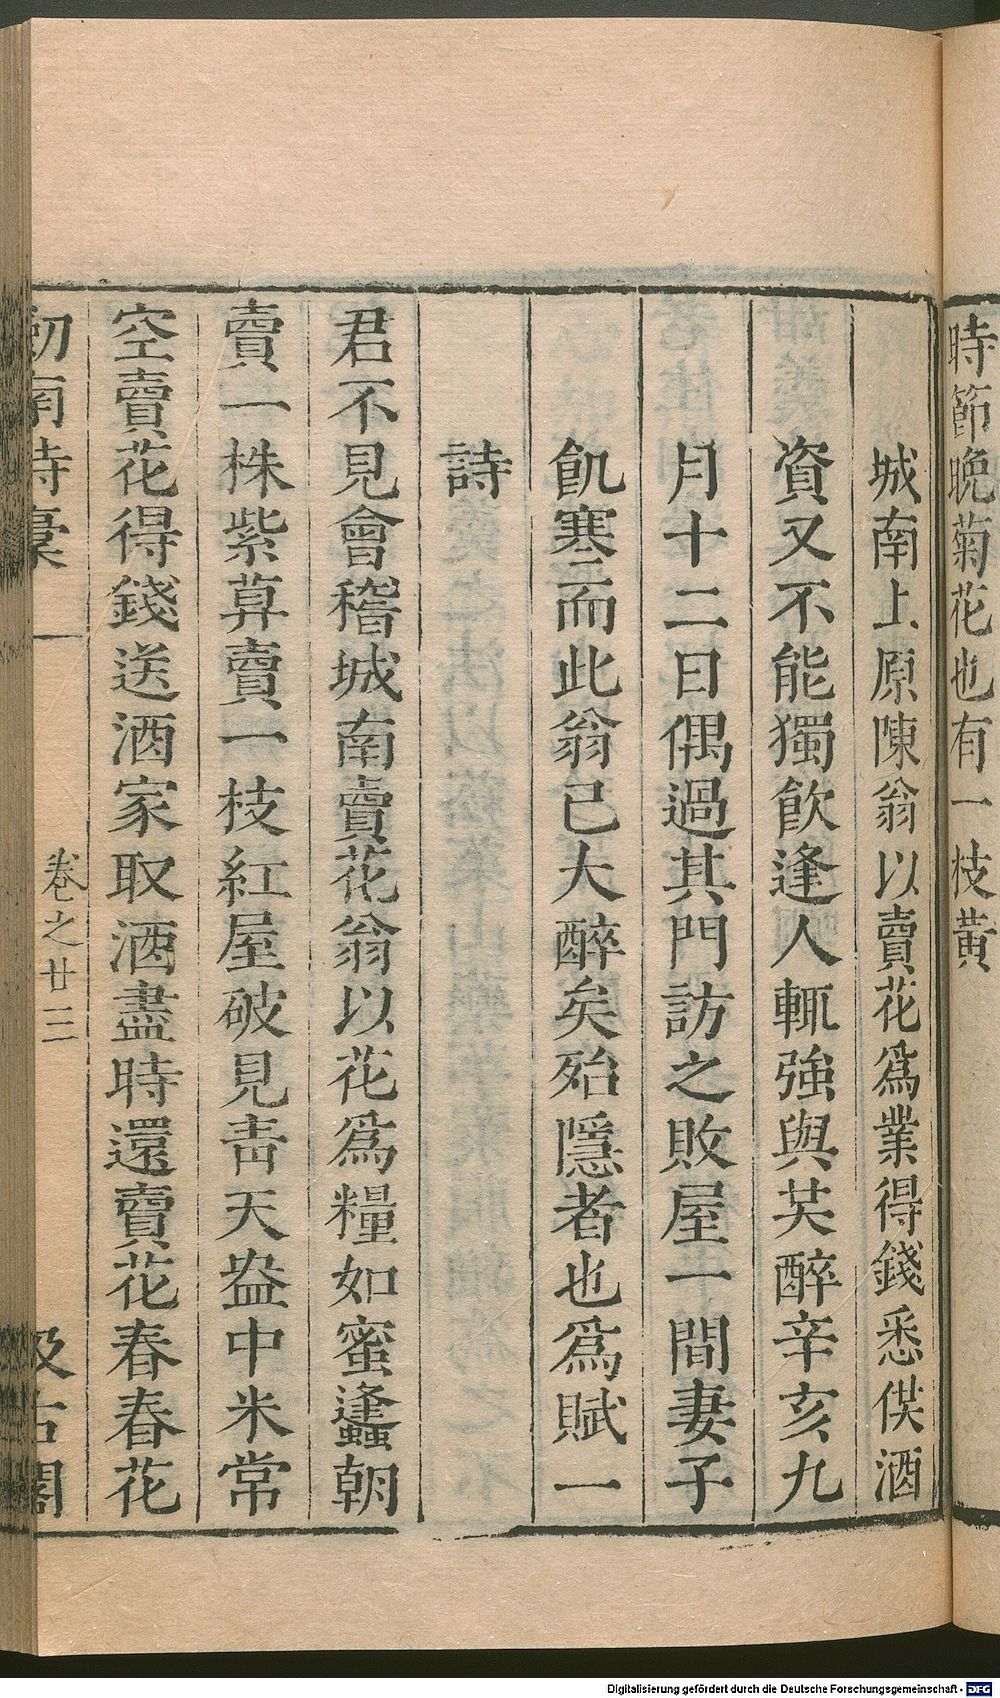 時節晚菊花也有一枝黃
城南上原陳翁以賣花爲業得錢悉供酒
資又不能獨飲逢人輒強與共醉辛亥九
月十二日偶過其門訪之敗屋一間妻子
飢寒而此翁已大醉矣殆隱者也爲賦一
詩
君不見會稽城南賣花翁以花爲糧如蜜蠭朝
賣一株紫莫賣一枝紅屋破見靑天盎中米常
空賣花得錢送酒家取酒盡時還賣花春春花
劒南詩稾
卷之廿三
汲古閣
Digitalisierung gefördert durch die Deutsche Forschungsgemeinschaft - DFG